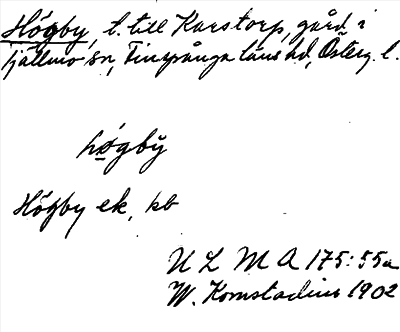 Högby, t. till Karstorp, gård i
Tjällmo sn, Finspånga läns hd, Österg. l.
högby
Högby ek, kb
ULMA 175:55a
W. Komstadius 1902